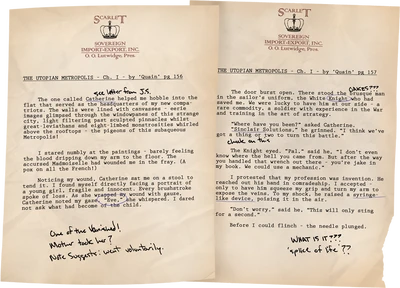 SCARLET
SOVEREIGN
IMPORT-EXPORT, INC.
O. O. Lutwidge, Pres.
THE UTOPIAN METROPOLIS - Ch. I - by 'Quain' pg 156
see letter from J.S.
The one called Catherine helped me hobble into the
flat that served as the headquarters of my new compa-
triots. The walls were lined with canvasses - eerie
images glimpsed through the windowpanes of this strange
city, light filtering past sculpted pinnacles whilst
great-leviathans and bioluminated monstrosities whirled
above the rooftops - the pigeons of this subaqueous
I stared numbly at the paintings - barely feeling
the blood dripping down my arm to the floor. The
accursed Mademoiselle had wounded me in the fray. (A
pox on all the French!)
Noticing my wound, Catherine sat me on a stool to
tend it. I found myself directly facing a portrait of
a young girl, fragile and innocent. Every brushstroke
spoke of love. As she wrapped my wound with gauze,
Catherine noted my gaze. "Eve," she whispered. I dared
not ask what had become of the child.
One of the Vanished!
Mother took her?
Note suggests: went voluntarily.
SCARLET
SOVEREIGN
IMPORT-EXPORT, INC.
O. O. Lutwidge, Pres.
THE UTOPIAN METROPOLIS - Ch. I - by 'Quain' pg 157
The door burst open. There stood the brusque man
in the sailor's uniform, the White Knight who had
saved me. We were lucky to have him at our side - a
rare commodity, a soldier with experience in the War
and training in the art of strategy.
"Where have you been?" asked Catherine.
"Sinclair Solutions," he grinned. "I think we've
got a thing or two to turn this battle."
check on this
The Knight eyed me. "Pal," said he, "I don't even
know where the hell you came from. But after the way
you handled that wrench out there - you're jake in
my book. We could use a mechanic."
I protested that my profession was invention. He
reached out his hand in comradeship. I accepted -
only to have him squeeze my grip and turn my arm to
expose the veins. To my shock, he raised a syringe-
like device, poising it in the air.
"Don't worry," said he, "This will only sting
for a second."
Before I could flinch - the needle plunged.
WHAT IS IT???
'splice of life'??